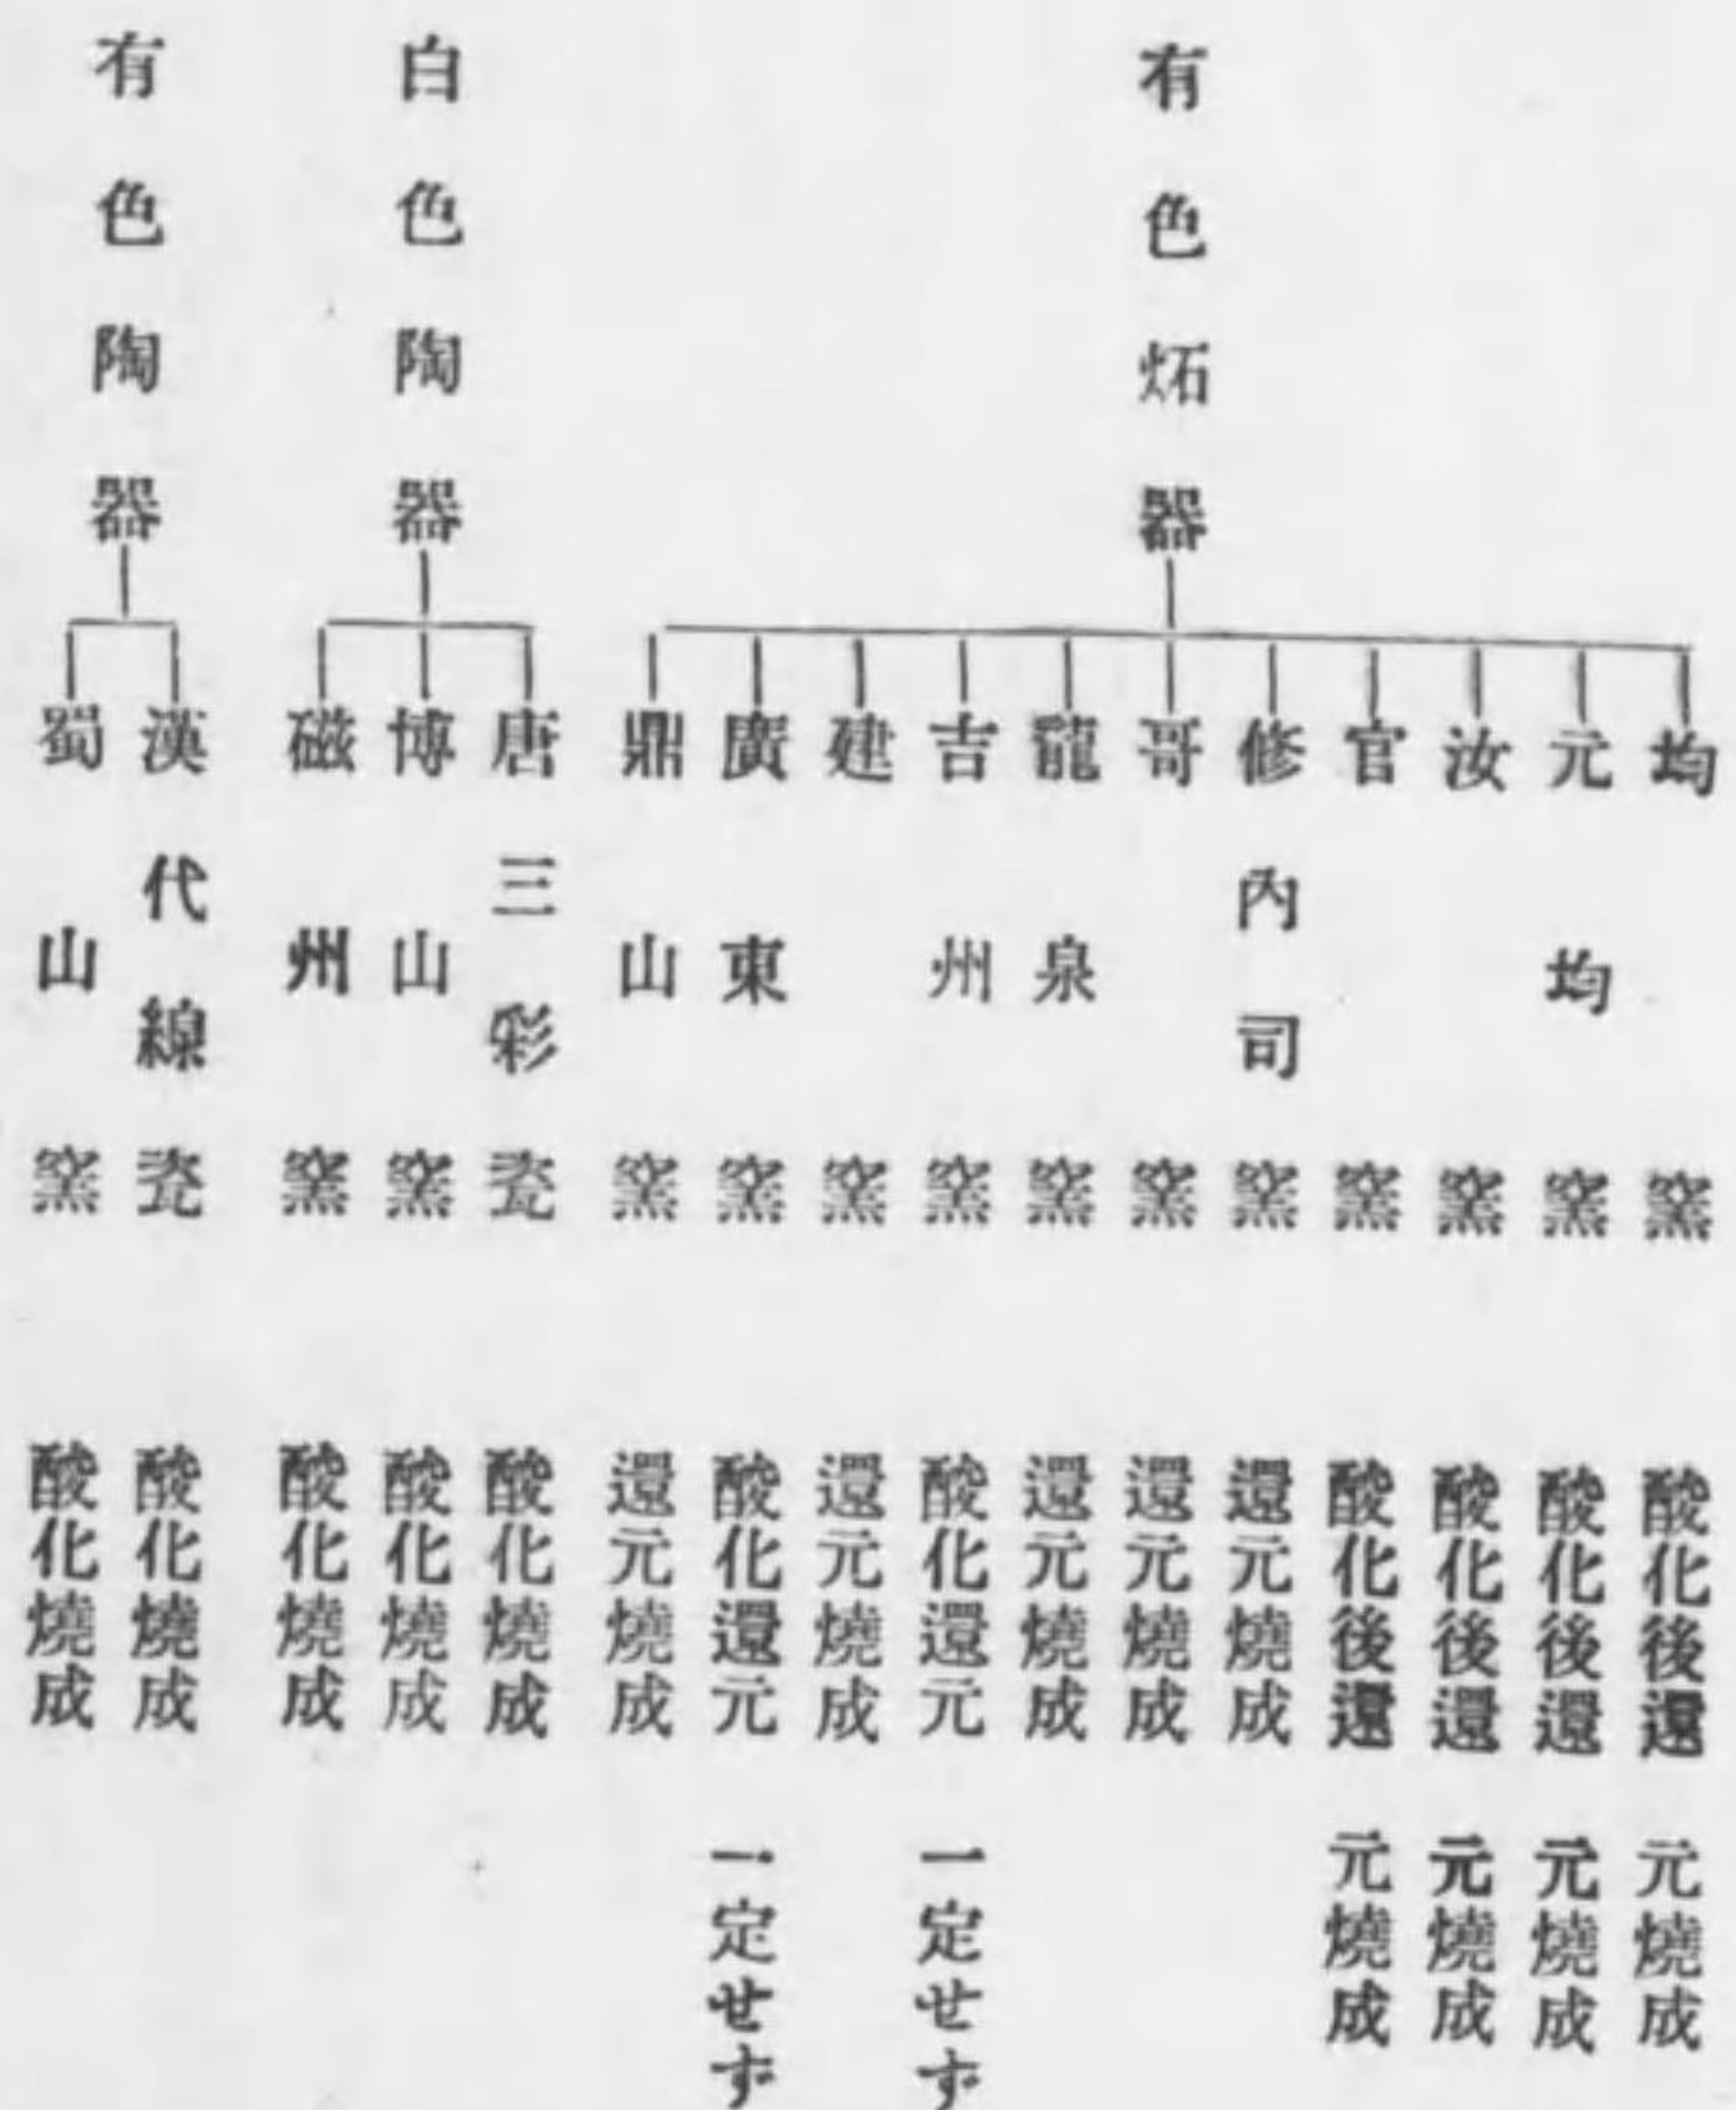 有色炻器
均窯 酸化後還元燒成
元均窯 酸化後還元燒成
汝窯 酸化後還元燒成
官窯 酸化後還元燒成
修內司窯 還元燒成
哥窯 還元燒成
龍泉窯 還元燒成
吉州窯 酸化還元一定せず
建窯 還元燒成
廣東窯 酸化還元一定せず
鼎山窯 還元燒成
白色陶器
唐三彩瓷 酸化燒成
博山窯 酸化燒成
磁州窯 酸化燒成
有色陶器
漢代線瓷 酸化燒成
蜀山窯 酸化燒成